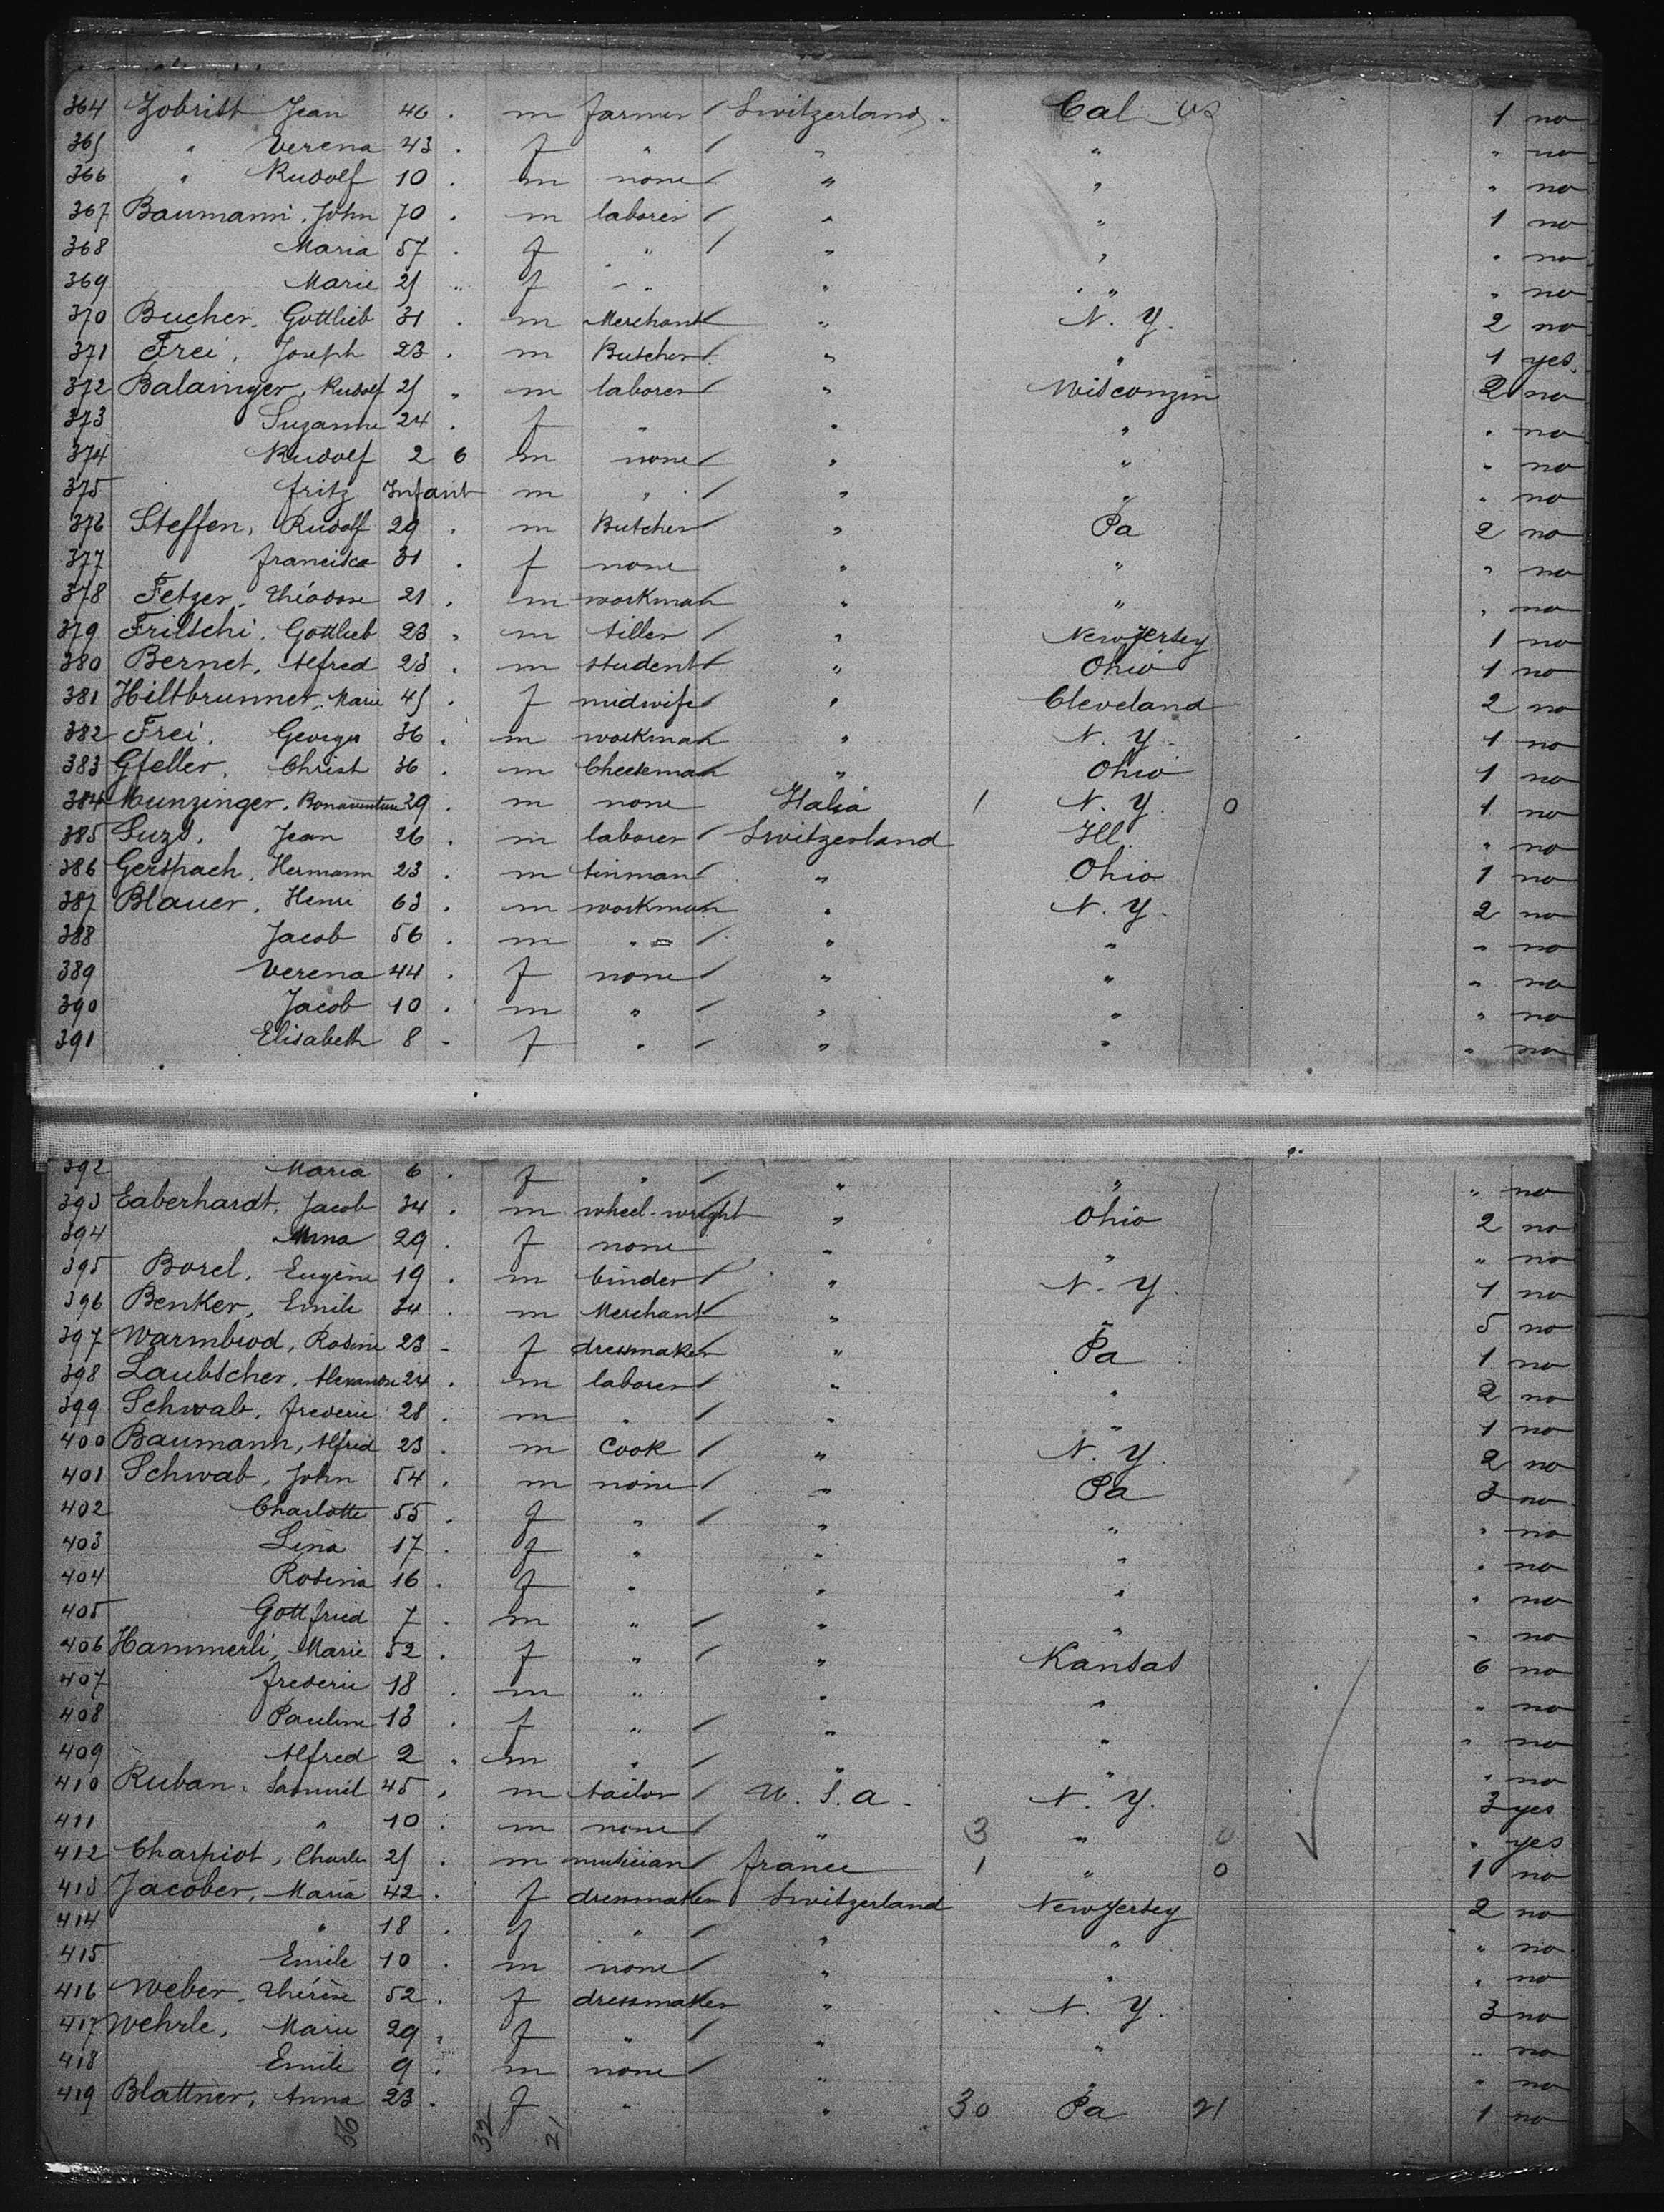 364 Zobrist Jean 40 . m farmer / Switzerland . Cal 1 no
365 " Verena 43 . f " / " " " no
366 " Rudolf 10 . m none / " " " no
367 Baumann, John 70 . m laborer / " " 1 no
368 Maria 57 . f " / " " " no
369 Marie 25 " f " " " " no
370 Bucher, Gottlieb 31 . m Merchant " N. Y. 2 no
371 Frei, Joseph 23 . m Butcher / " " 1 yes
372 Balainger, Rudolf 25 " m laborer / " Wisconzin 2 no
373 Suzanne 24 . f " " " " no
374 Rudolf 2 6 m none / " " " no
375 fritz Infant m " / " " " no
376 Steffen, Rudolf 29 . m Butcher " Pa 2 no
377 francisca 31 . f none " " " no
378 Fetzer, Théodore 21 . m workman " " " no
379 Fritschi, Gottlieb 23 . m tiller / " New Jersey 1 no
380 Bernet, Alfred 23 . m student " Ohio 1 no
381 Hiltbrunner, Marie 45 . f midwife " Cleveland 2 no
382 Frei, Georges 36 . m workman " N. Y. 1 no
383 Gfeller, Christ 36 . m Cheeseman " Ohio 1 no
384 Munzinger, Bonaventura 29 . m none Italia 1 N. Y. 0 1 no
385 Jean 26 . m laborer / Switzerland Ill. " no
386 Gerspach, Hermann 23 . m tinman " Ohio 1 no
387 Blauer, Henri 63 . m workman " N. Y. 2 no
388 Jacob 56 . m " / " " " no
389 Verena 44 . f none / " " " no
390 Jacob 10 . m " / " " " no
391 Elisabeth 8 . f " / " " " no
392 Maria 6 . f " / " " " no
393 Eaberhardt, Jacob 34 . m wheel-wright " Ohio 2 no
394 Mina 29 . f none " " " no
395 Borel, Eugène 19 . m binder / " N. Y. 1 no
396 Benker, Emile 34 . m Merchant " " 5 no
397 Warmbrod, Rosine 23 - f dressmaker " Pa 1 no
398 Laubscher, Alexandre 24 . m laborer / " " 2 no
399 Schwab, frederic 28 . m " / " " 1 no
400 Baumann, Alfred 23 . m Cook / " N. Y. 2 no
401 Schwab, John 54 . m none / " Pa 3 no
402 Charlotte 55 . f " / " " " no
403 Lina 17 . f " " " " no
404 Rosina 16 . f " " " " no
405 Gottfried 7 . m " / " " " no
406 Hammerli, Marie 52 . f " / " Kansas 6 no
407 frederic 18 . m " " " " no
408 Pauline 13 . f " / " " " no
409 Alfred 2 . m " / " " " no
410 Ruban, Samuel 45 . m tailor / U. S. a. N. Y. 3 yes
411 " 10 . m none / " 3 " 0 " yes
412 Charpiot, Charles 25 . m musician france 1 " 0 1 no
413 Jacober, Maria 42 . f dressmaker Switzerland New Jersey 2 no
414 " 18 . f " / " " " no
415 Emile 10 . m none / " " " no
416 Weber, Thérèse 52 . f dressmaker " N. Y. 3 no
417 Wehrle, Marie 29 . f " / " " " no
418 Emile 9 . m none / " " " no
419 Blattner, Anna 23 . f " " 30 Pa 21 1 no
56 32 21